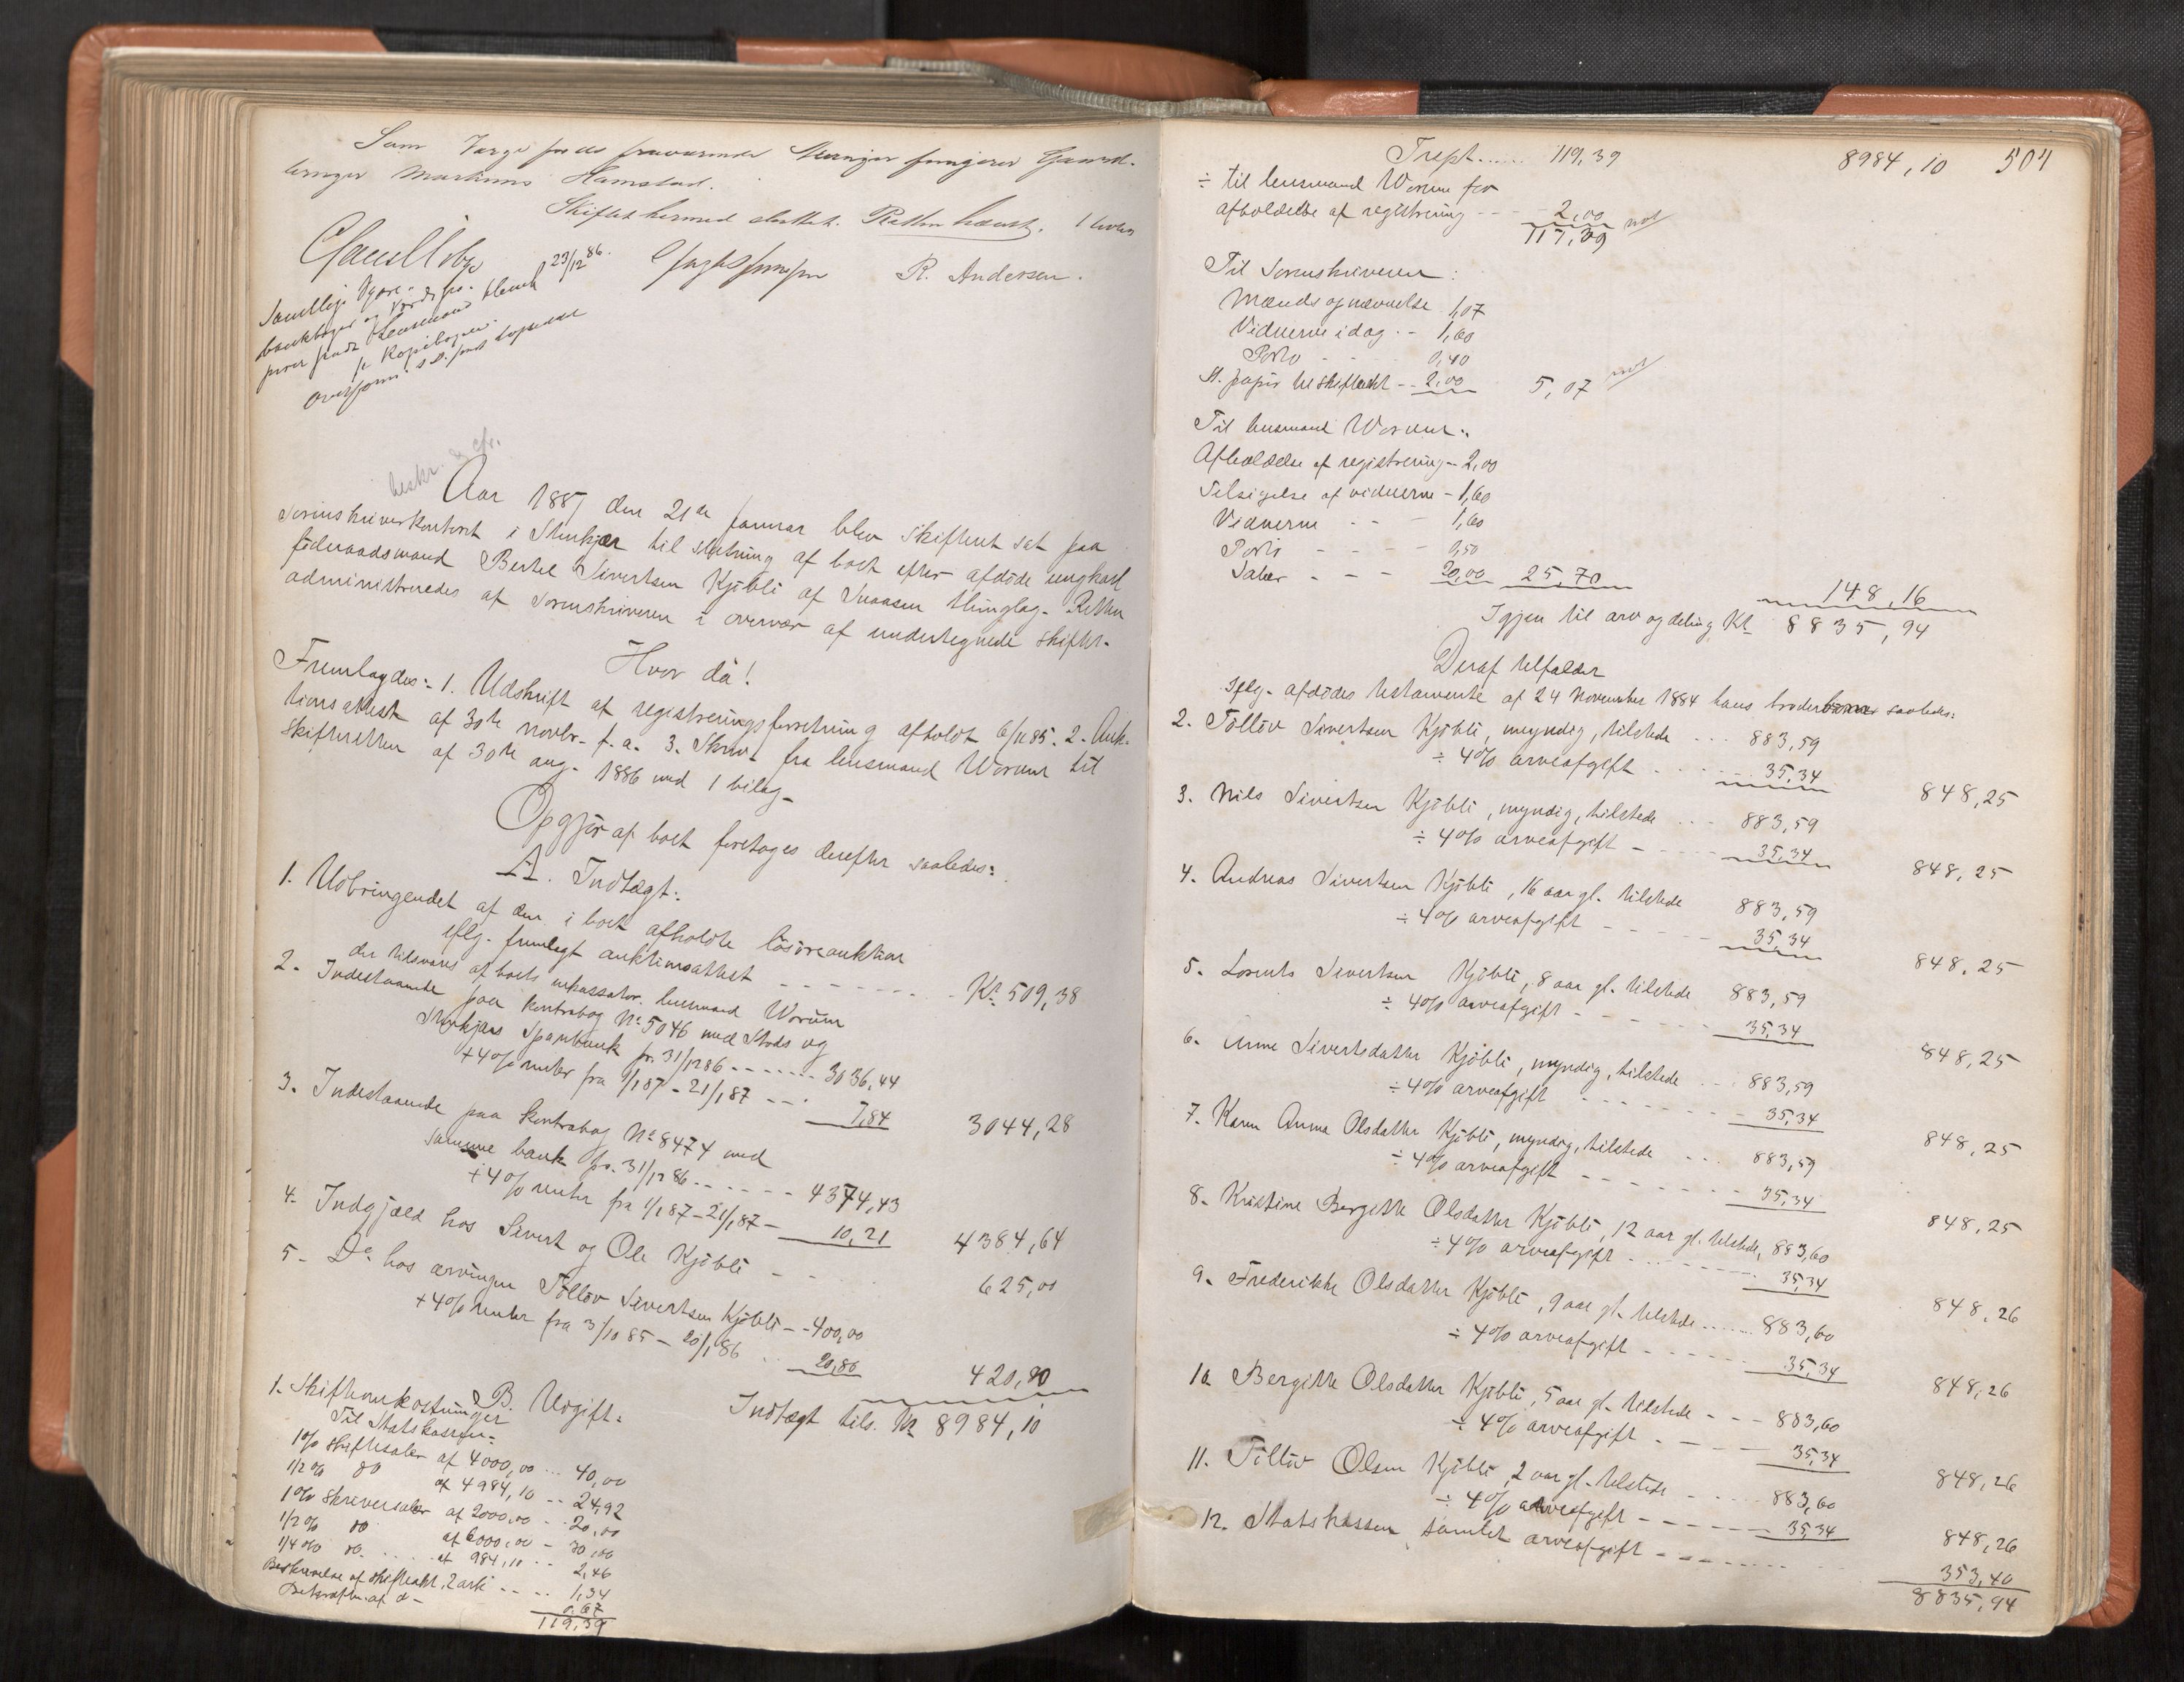 Som Verge for de fraværende Arvinger fungerer Gaard-
bruger Martinus Hamstad.
Skiftet hermed sluttet. Retten hævet.
R. Andersen.
23/12 86.
beskr. & cfr.
Aar 1887 den 21de januar blev skifteret sat paa
sorenskriverkontoret i Stenkjær til slutning af boet efter afdøde ungkarl
föderaadsmand Bertel Sivertsen Kjöbli af Snaasen thinglag. Retten
administreredes af sorenskriveren i overvær af undertegnede skifte-
Hvor da!
Fremlagdes: 1. Udskrift af registreringsforretning afholdt 6/11 85. 2. Auk-
tionsattest af 30te novbr. f. a. 3. Skriv. fra lensmand Worum til
skifteretten af 30te aug. 1886 med 1 bilag.
Opgjör af boet foretages derefter saaledes:
A. Indtægt:
1. Udbringendet af den i boet afholdte lösöreauktion
iflg. fremlagt auktionsattest - - - - - - - - Kr. 509,38
der tilsvares af boets inkassator lensmand Worum
2. Indestaaende paa kontrabog No 5046 med Stods og
Stenkjærs Sparebank pr. 31/12 86 - - - - - - - 3036,44
+ 4% renter fra 1/1 87 - 21/1 87 - - - 7,84 3044,28
3. Indestaaende paa kontrabog No 8474 med
samme bank pr. 31/12 86 - - - - - - 4374,43
+ 4% renter fra 1/1 87 - 21/1 87 - 10,21 4384,64
4. Indgjæld hos Sivert og Ole Kjöbli - - - 625,00
5. Do hos arvingen Töllöv Sivertsen Kjöbli - - 400,00
+ 4% renter fra 3/10 85 - 20/1 86 - - 20,80 420,80
Indtægt tils. Kr 8984,10
B. Udgift:
1. Skifteomkostninger
Til Statskassen:
1% skiftesalær af 4000,00 ... 40,00
1/2% do af 4984,10 - - 24,92
1% skriversalær af 2000,00 - - 20,00
1/2% do af 6000,00 - 30,00
1/4% do. af 984,10 - - 2,46
Beskrivelse af skifteakt, 2 ark - - - 1,34
Bekræftn. af d - 0,67
119,39
Trspt...... 119,39 8984,10 504
÷ til lensmand Worum for
afholdelse af registrering - - - 2,00
117,39
Til Sorenskriveren:
Mænds opnævnelse 1,07
Vidnerne idag - - 1,60
Porto - - - 0,40
St. papir til skifteakt - - 2,00 5,07
Til lensmand Worum:
Afholdelse af registrering - 2,00
Tilsigelse af vidnerne - 1,60
Vidnerne - - - 1,60
Porto - - - - 0,50
Salær - - - 20,00 25,70 148,16
Igjen til arv og deling Kr 8835,94
Deraf tilfalder
Iflg. afdödes testamente af 24 November 1884 hans broderbörn saaledes:
2. Töllöv Sivertsen Kjöbli, myndig, tilstede - - - 883,59
÷ 4% arveafgift - - - 35,34 848,25
3. Nils Sivertsen Kjöbli, myndig, tilstede - - - 883,59
÷ 4% arveafgift - - - 35,34 848,25
4. Andreas Sivertsen Kjöbli, 16 aar gl. tilstede 883,59
÷ 4% arveafgift - - - - - 35,34 848,25
5. Lorents Sivertsen Kjöbli, 8 aar gl. tilstede 883,59
÷ 4% arveafgift - - - - - 35,34 848,25
6. Anne Sivertsdatter Kjöbli, myndig, tilstede - - - 883,59
÷ 4% arveafgift - - - - - 35,34 848,25
7. Karen Anna Olsdatter Kjöbli, myndig, tilstede - - - 883,59
÷ 4% arveafgift - - - - - 35,34 848,25
8. Kristine Bergitte Olsdatter Kjöbli, 12 aar gl. tilstede, 883,60
÷ 4% arveafgift - - - - - 35,34 848,26
9. Frederikke Olsdatter Kjöbli, 9 aar gl. tilstede ...... 883,60
÷ 4% arveafgift - - - - - 35,34 848,26
10. Bergitte Olsdatter Kjöbli, 5 aar gl. tilstede - - - 883,60
÷ 4% arveafgift - - - - 35,34 848,26
11. Töllöv Olsen Kjöbli, 2 aar gl. tilstede - - - - 883,60
÷ 4% arveafgift - - - - - 35,34 848,26
12. Statskassen samlet arveafgift - - - - - - - 353,40
8835,94